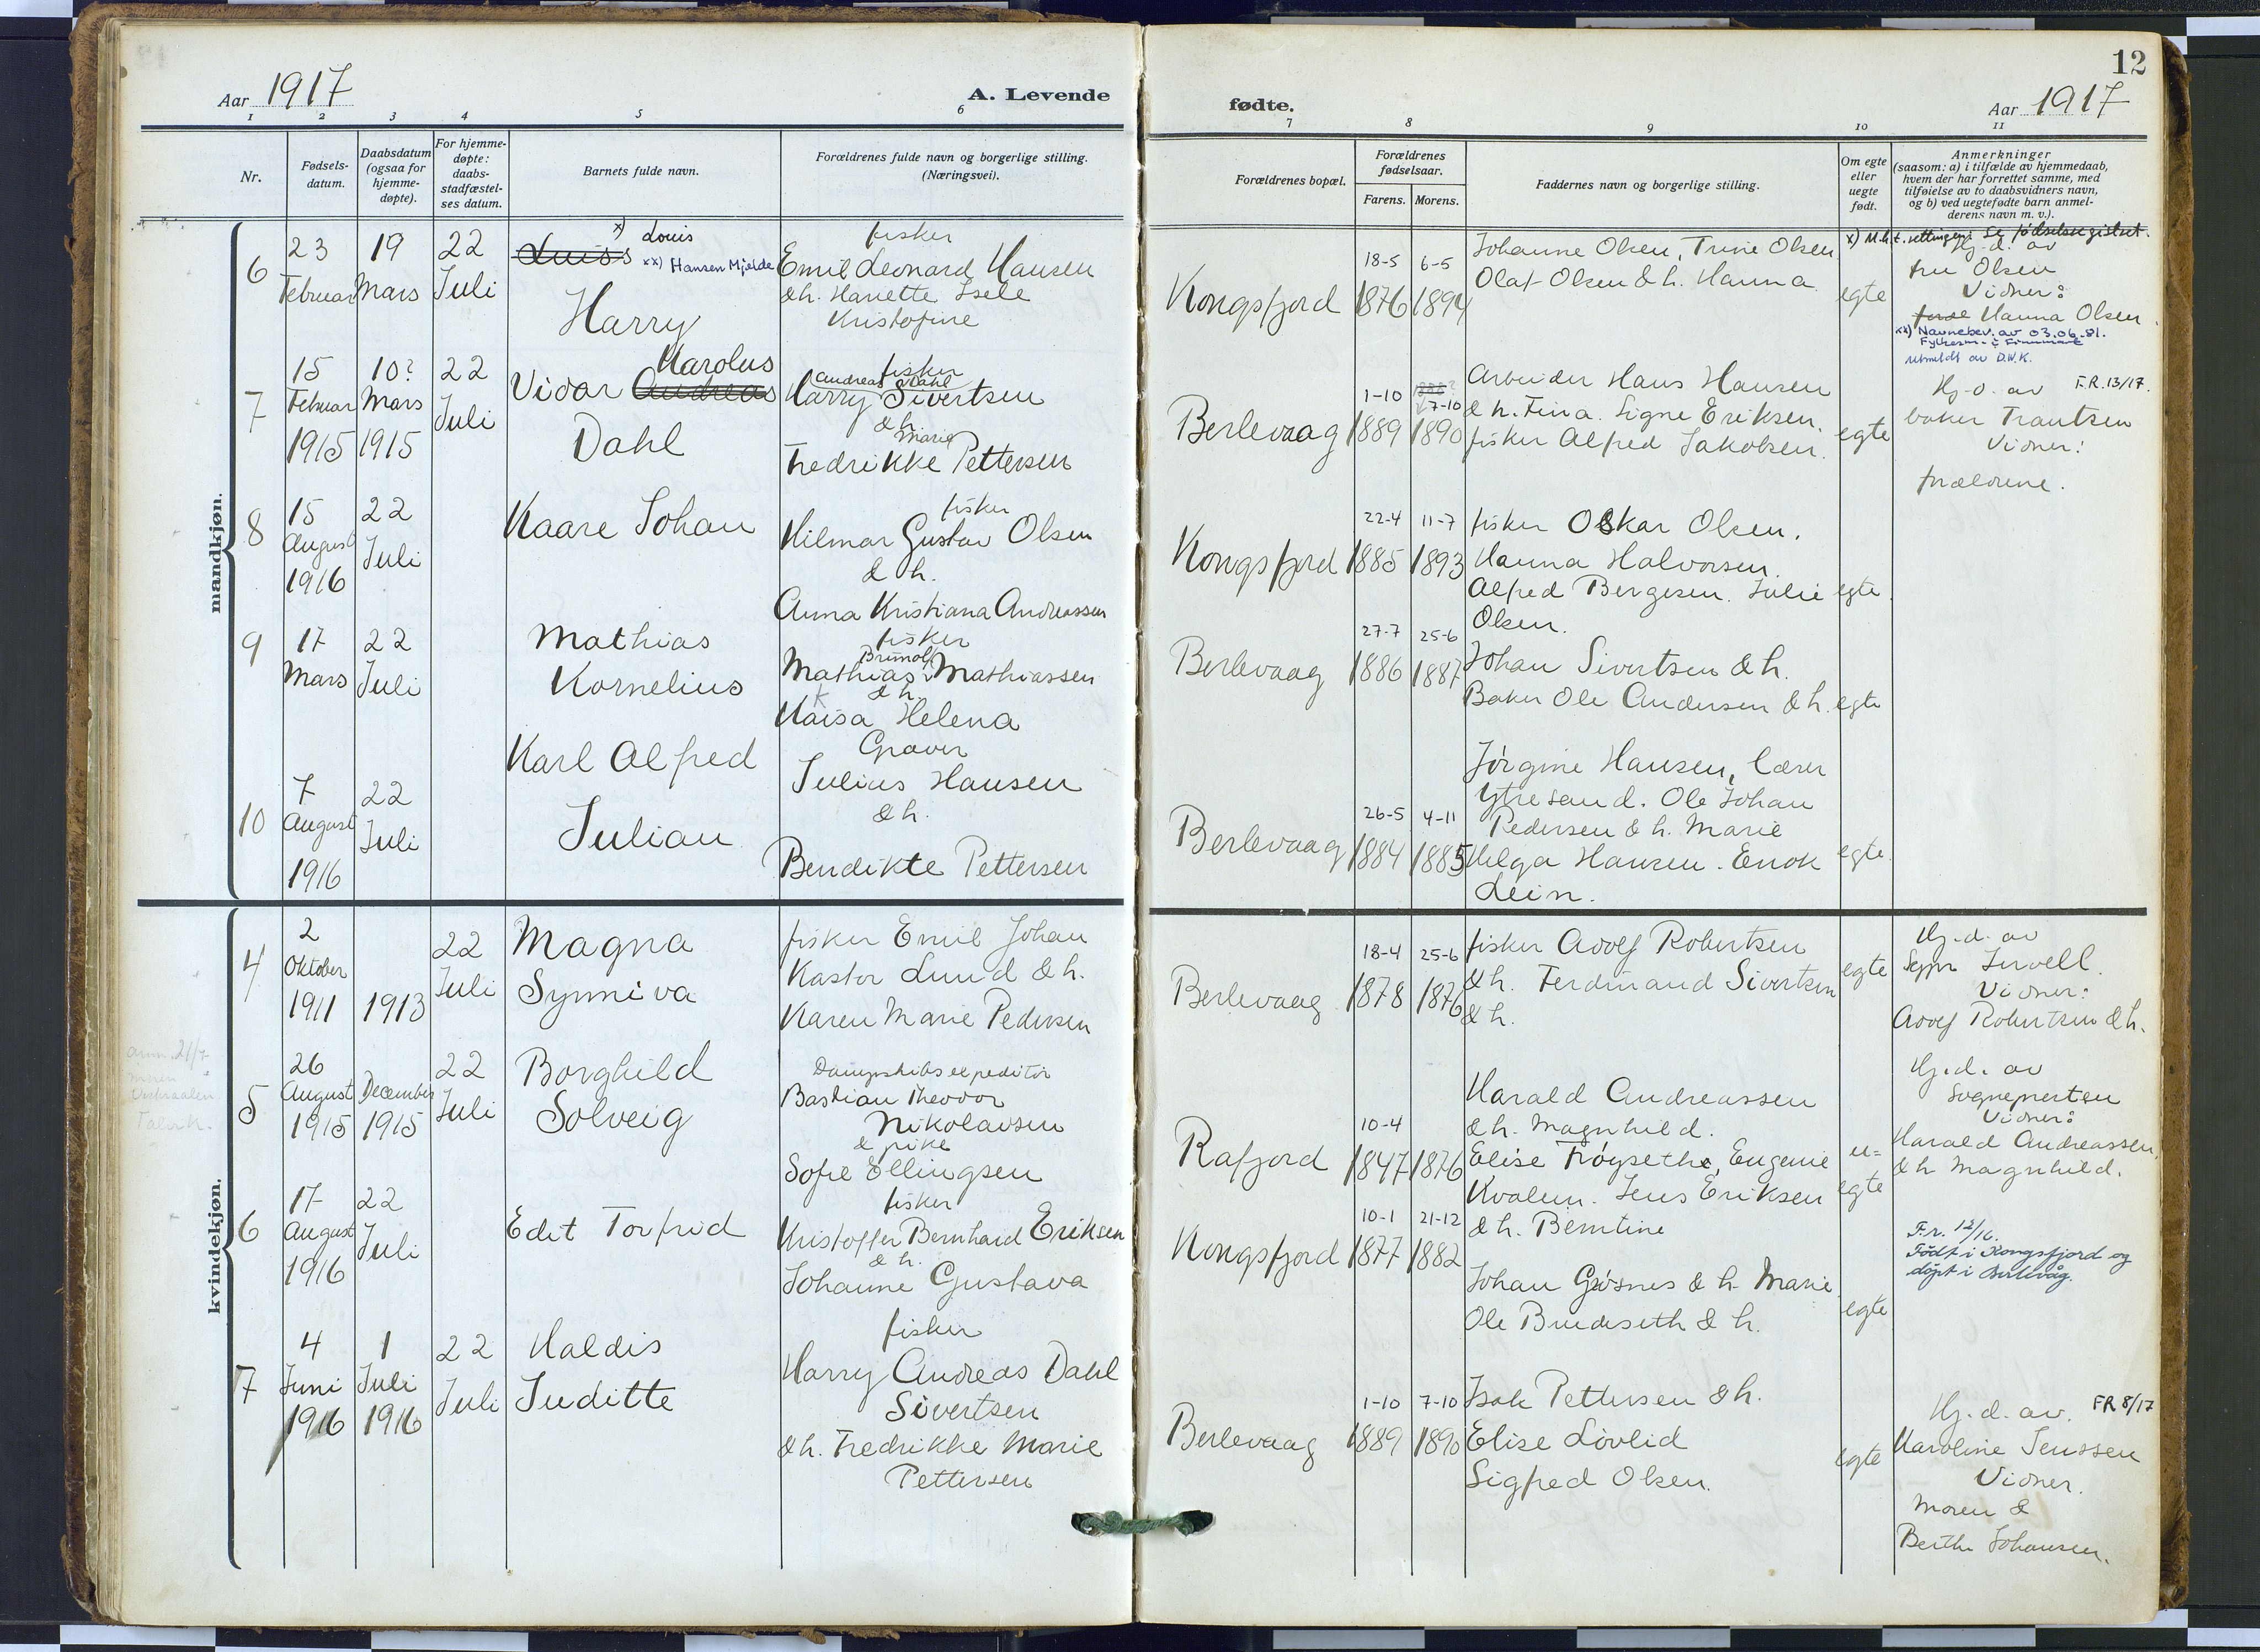 Aar 1917
A. Levende
1 2 3 4 5 6
Nr.
Fødsels-
datum.
Daabsdatum
(ogsaa for
hjemme-
døpte).
For hjemme-
døpte:
daabs-
stadfæstel-
ses datum.
Barnets fulde navn.
Forældrenes fulde navn og borgerlige stilling.
(Næringsvei).
mandkjøn.
6
23
Februar
19
Mars
22
Juli
x) Louis
Luiss
xx) Hansen Mjelde
Harry
fisker
Emil Leonard Hansen
& h. Hanette Isele
Kristofine
7
15
Februar
1915
10?
Mars
1915
22
Juli
Karolus
Vidar Andreas
Dahl
fisker
Andreas Dahl
Harry Sivertsen
& h.
Marie
Fredrikke Pettersen
8
15
August
1916
22
Juli
Kaare Johan
fisker
Hilmar Gustav Olsen
& h.
Anna Kristiana Andreassen
9
17
Mars
22
Juli
Mathias
Kornelius
fisker
Mathias Mathiassen
& h.
Kaisa Helena
10
7
August
1916
22
Juli
Karl Alfred
Julian
Graver
Julius Hansen
& h.
Bendikte Pettersen
kvindekjøn.
4
2
Oktober
1911
1913
22
Juli
Magna
Synniva
fisker Emil Johan
Kastor Lund & h.
Karen Marie Pedersen
5
26
August
1915
December
1915
22
Juli
Borghild
Solveig
Dampskibsexpeditør
Bastian Theodor
Nikolaisen
& pike
Sofie Ellingsen
6
17
August
1916
22
Juli
Edit Torfrid
fisker
Kristoffer Bernhard Eriksen
& h.
Johanne Gustava
7
4
Juni
1916
1
Juli
1916
22
Juli
Haldis
Juditte
fisker
Harry Andreas Dahl
Sivertsen
& h. Fredrikke Marie
Pettersen
12
fødte.
Aar 1917
7 8 9 10 11
Forældrenes bopæl.
Forældrenes
fødselsaar.
Farens. Morens.
Faddernes navn og borgerlige stilling.
Om egte
eller
uegte
født.
Anmerkninger
(saasom: a) i tilfælde av hjemmedaab,
hvem der har forrettet samme, med
tilføielse av to daabsvidners navn,
og b) ved uegtefødte barn anmel-
derens navn m. v.).
Kongsfjord
18-5
1876
6-5
1894
Johanne Olsen, Trine Olsen
Olaf Olsen & h. Hanna
egte
x) M.h.t. rettingen: Se fødselsregistret.
Hj-d. av
fru Olsen
Vidner:
Hanna Olsen.
xx) Navnebev. av 03.06.81.
Fylkesm. i Finnmark
utmeldt av D.N.K.
Berlevaag
1-10
1889
7-10
1890
Arbeider Hans Hansen
& h. Fina. Signe Eriksen.
fisker Alfred Jakobsen.
egte
Hj-d. av F.R. 13/17.
baker Trantsen
Vidner:
forældrene.
Kongsfjord
22-4
1885
11-7
1893
fisker Oskar Olsen.
Hanna Halvorsen.
Alfred Bergesen. Julie
Olsen.
egte.
Berlevaag
27-7
1886
25-6
1887
Johan Sivertsen & h.
Baker Ole Andersen & h.
egte
Berlevaag
26-5
1884
4-11
1885
Jørgine Hansen, lærer
Ytresand. Ole Johan
Pedersen & h. Marie
Helga Hansen. Enok
Lein.
egte.
Berlevaag
18-4
1878
25-6
1876
fisker Adolf Robertsen
& h. Ferdinand Sivertsen
& h.
egte
Hj.d. av
Sgpr Jervell.
Vidner:
Adolf Robertsen & h.
Rafjord
10-4
1847
1876
Harald Andreassen
& h. Magnhild.
Elise Frøysethe, Eugenie
Kvalum. Jens Eriksen
& h. Berntine
u=
egte
Hj.d. av
Sognepresten
Vidner:
Harald Andreassen,
& h Magnhild.
Kongsfjord
10-1
1877
21-12
1882
Johan Gåsnes & h. Marie
Ole Bredeseth & h.
egte
F.r. 12/16.
Født i Kongsfjord og
døpt i Berlevåg.
Berlevaag
1-10
1889
7-10
1890
Isak Pettersen & h.
Elise Løvlid
Sigfred Olsen.
egte
Hj. d. av. FR 8/17
Karoline Jenssen
Vidner.
Moren &
Berthe Johansen.